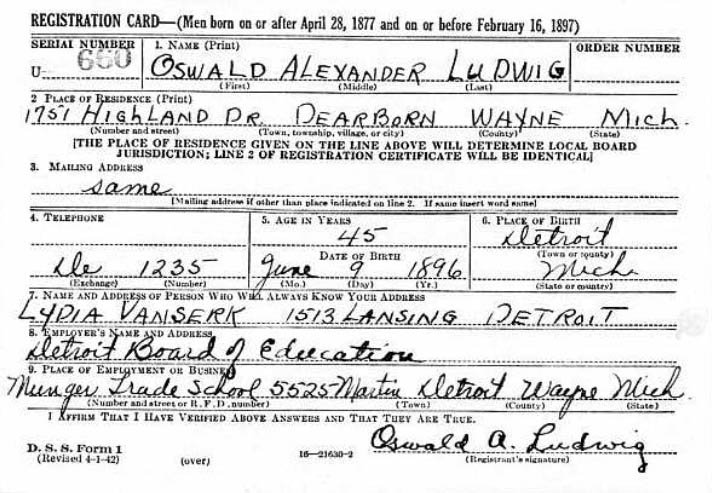 REGISTRATION CARD—(Men born on or after April 28, 1877 and on or before February 16, 1897)
SERIAL NUMBER 1. NAME (Print) ORDER NUMBER
U- 660 OSWALD ALEXANDER LUDWIG
(First) (Middle) (Last)
2 PLACE OF RESIDENCE (Print)
1751 HIGHLAND DR. DEARBORN WAYNE MICH.
(Number and street) (Town, township, village, or city) (County) (State)
[THE PLACE OF RESIDENCE GIVEN ON THE LINE ABOVE WILL DETERMINE LOCAL BOARD
JURISDICTION; LINE 2 OF REGISTRATION CERTIFICATE WILL BE IDENTICAL]
3. MAILING ADDRESS
same
[Mailing address if other than place indicated on line 2. If same insert word same]
4. TELEPHONE 5. AGE IN YEARS 6. PLACE OF BIRTH
45 Detroit
DATE OF BIRTH (Town or county)
De 1235 June 9 1896 Mich.
(Exchange) (Number) (Mo.) (Day) (Yr.) (State or country)
7. NAME AND ADDRESS OF PERSON WHO WILL ALWAYS KNOW YOUR ADDRESS
LYDIA VANSERK 1513 LANSING DETROIT
8. EMPLOYER'S NAME AND ADDRESS
Detroit Board of Education
9. PLACE OF EMPLOYMENT OR BUSINESS
Munger Trade School 5525 Martin Detroit Wayne Mich.
(Number and street or R. F. D. number) (Town) (County) (State)
I AFFIRM THAT I HAVE VERIFIED ABOVE ANSWERS AND THAT THEY ARE TRUE.
Oswald A. Ludwig
D. S. S. Form 1
(Revised 4-1-42) (over) 16—21630-2 (Registrant's signature)